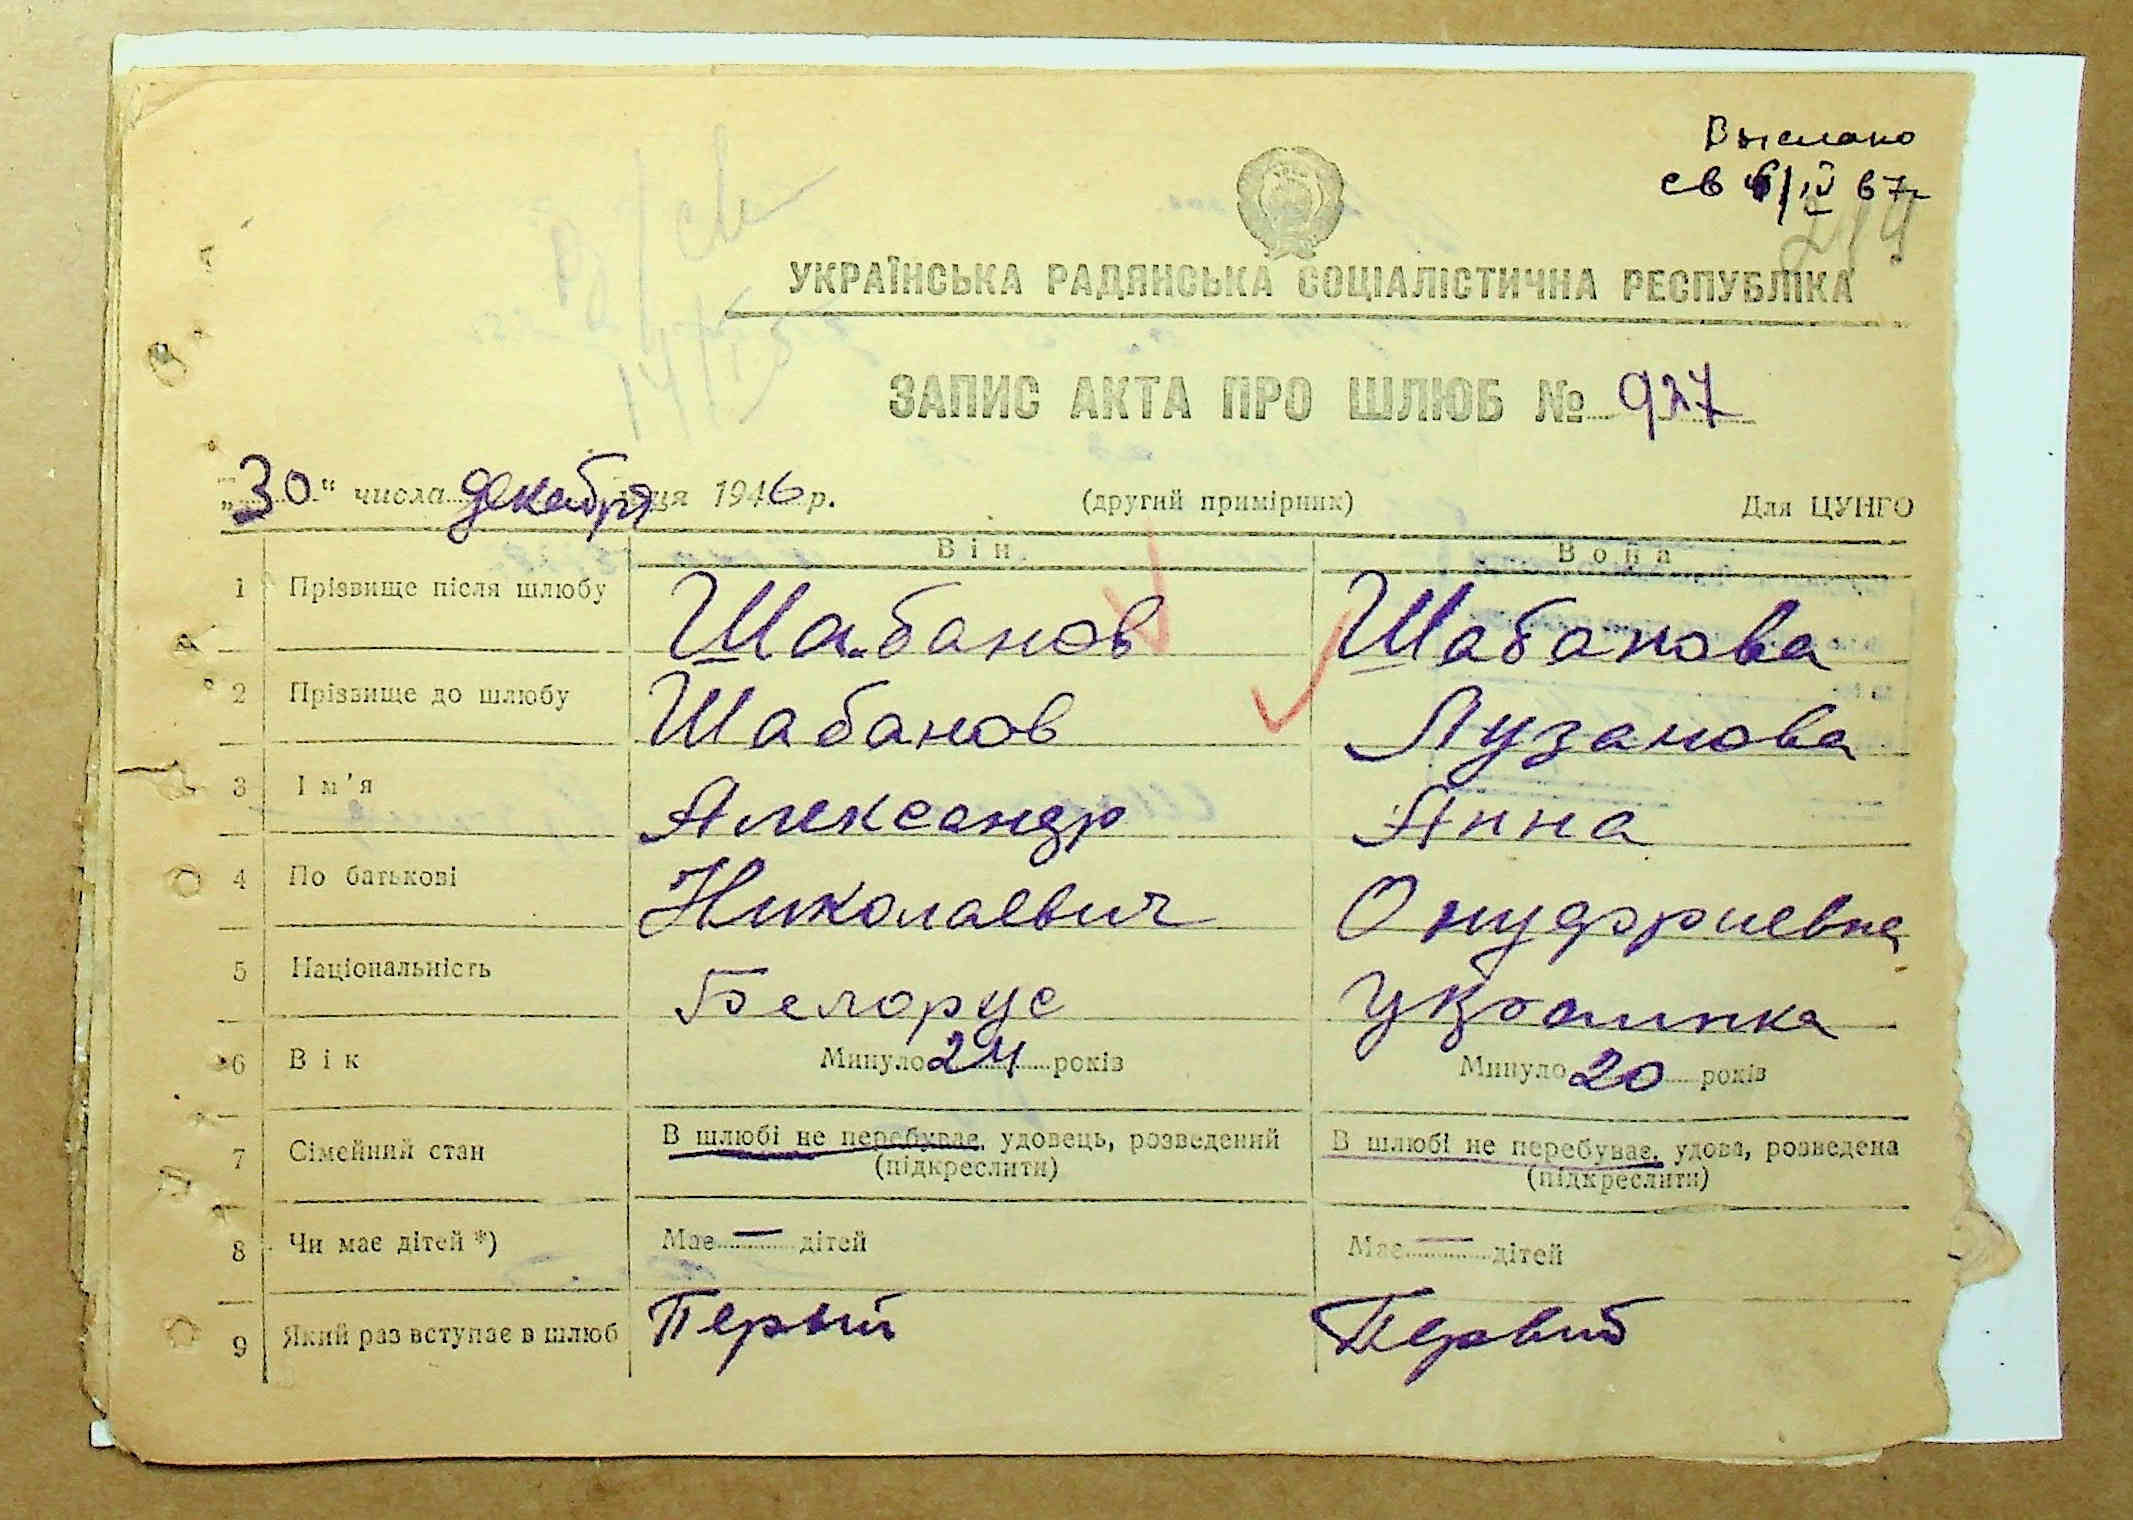 Выслано
св 6/IV 67г
214
УКРАЇНСЬКА РАДЯНСЬКА СОЦІАЛІСТИЧНА РЕСПУБЛІКА
ЗАПИС АКТА ПРО ШЛЮБ № 927
„30“ числа декабря м-ця 1946 р. (другий примірник) Для ЦУНГО
Він Вона
1 Прізвище після шлюбу Шабанов Шабанова
2 Прізвище до шлюбу Шабанов Лузанова
3 Ім'я Александр Анна
4 По батькові Николаевич Онуфриевна
5 Національність Белорус Украинка
6 Вік Минуло 24 років Минуло 20 років
7 Сімейний стан В шлюбі не перебуває, удовець, розведений В шлюбі не перебуває, удова, розведена
(підкреслити) (підкреслити)
8 Чи має дітей *) Має — дітей Має — дітей
9 Який раз вступає в шлюб Первый Первый